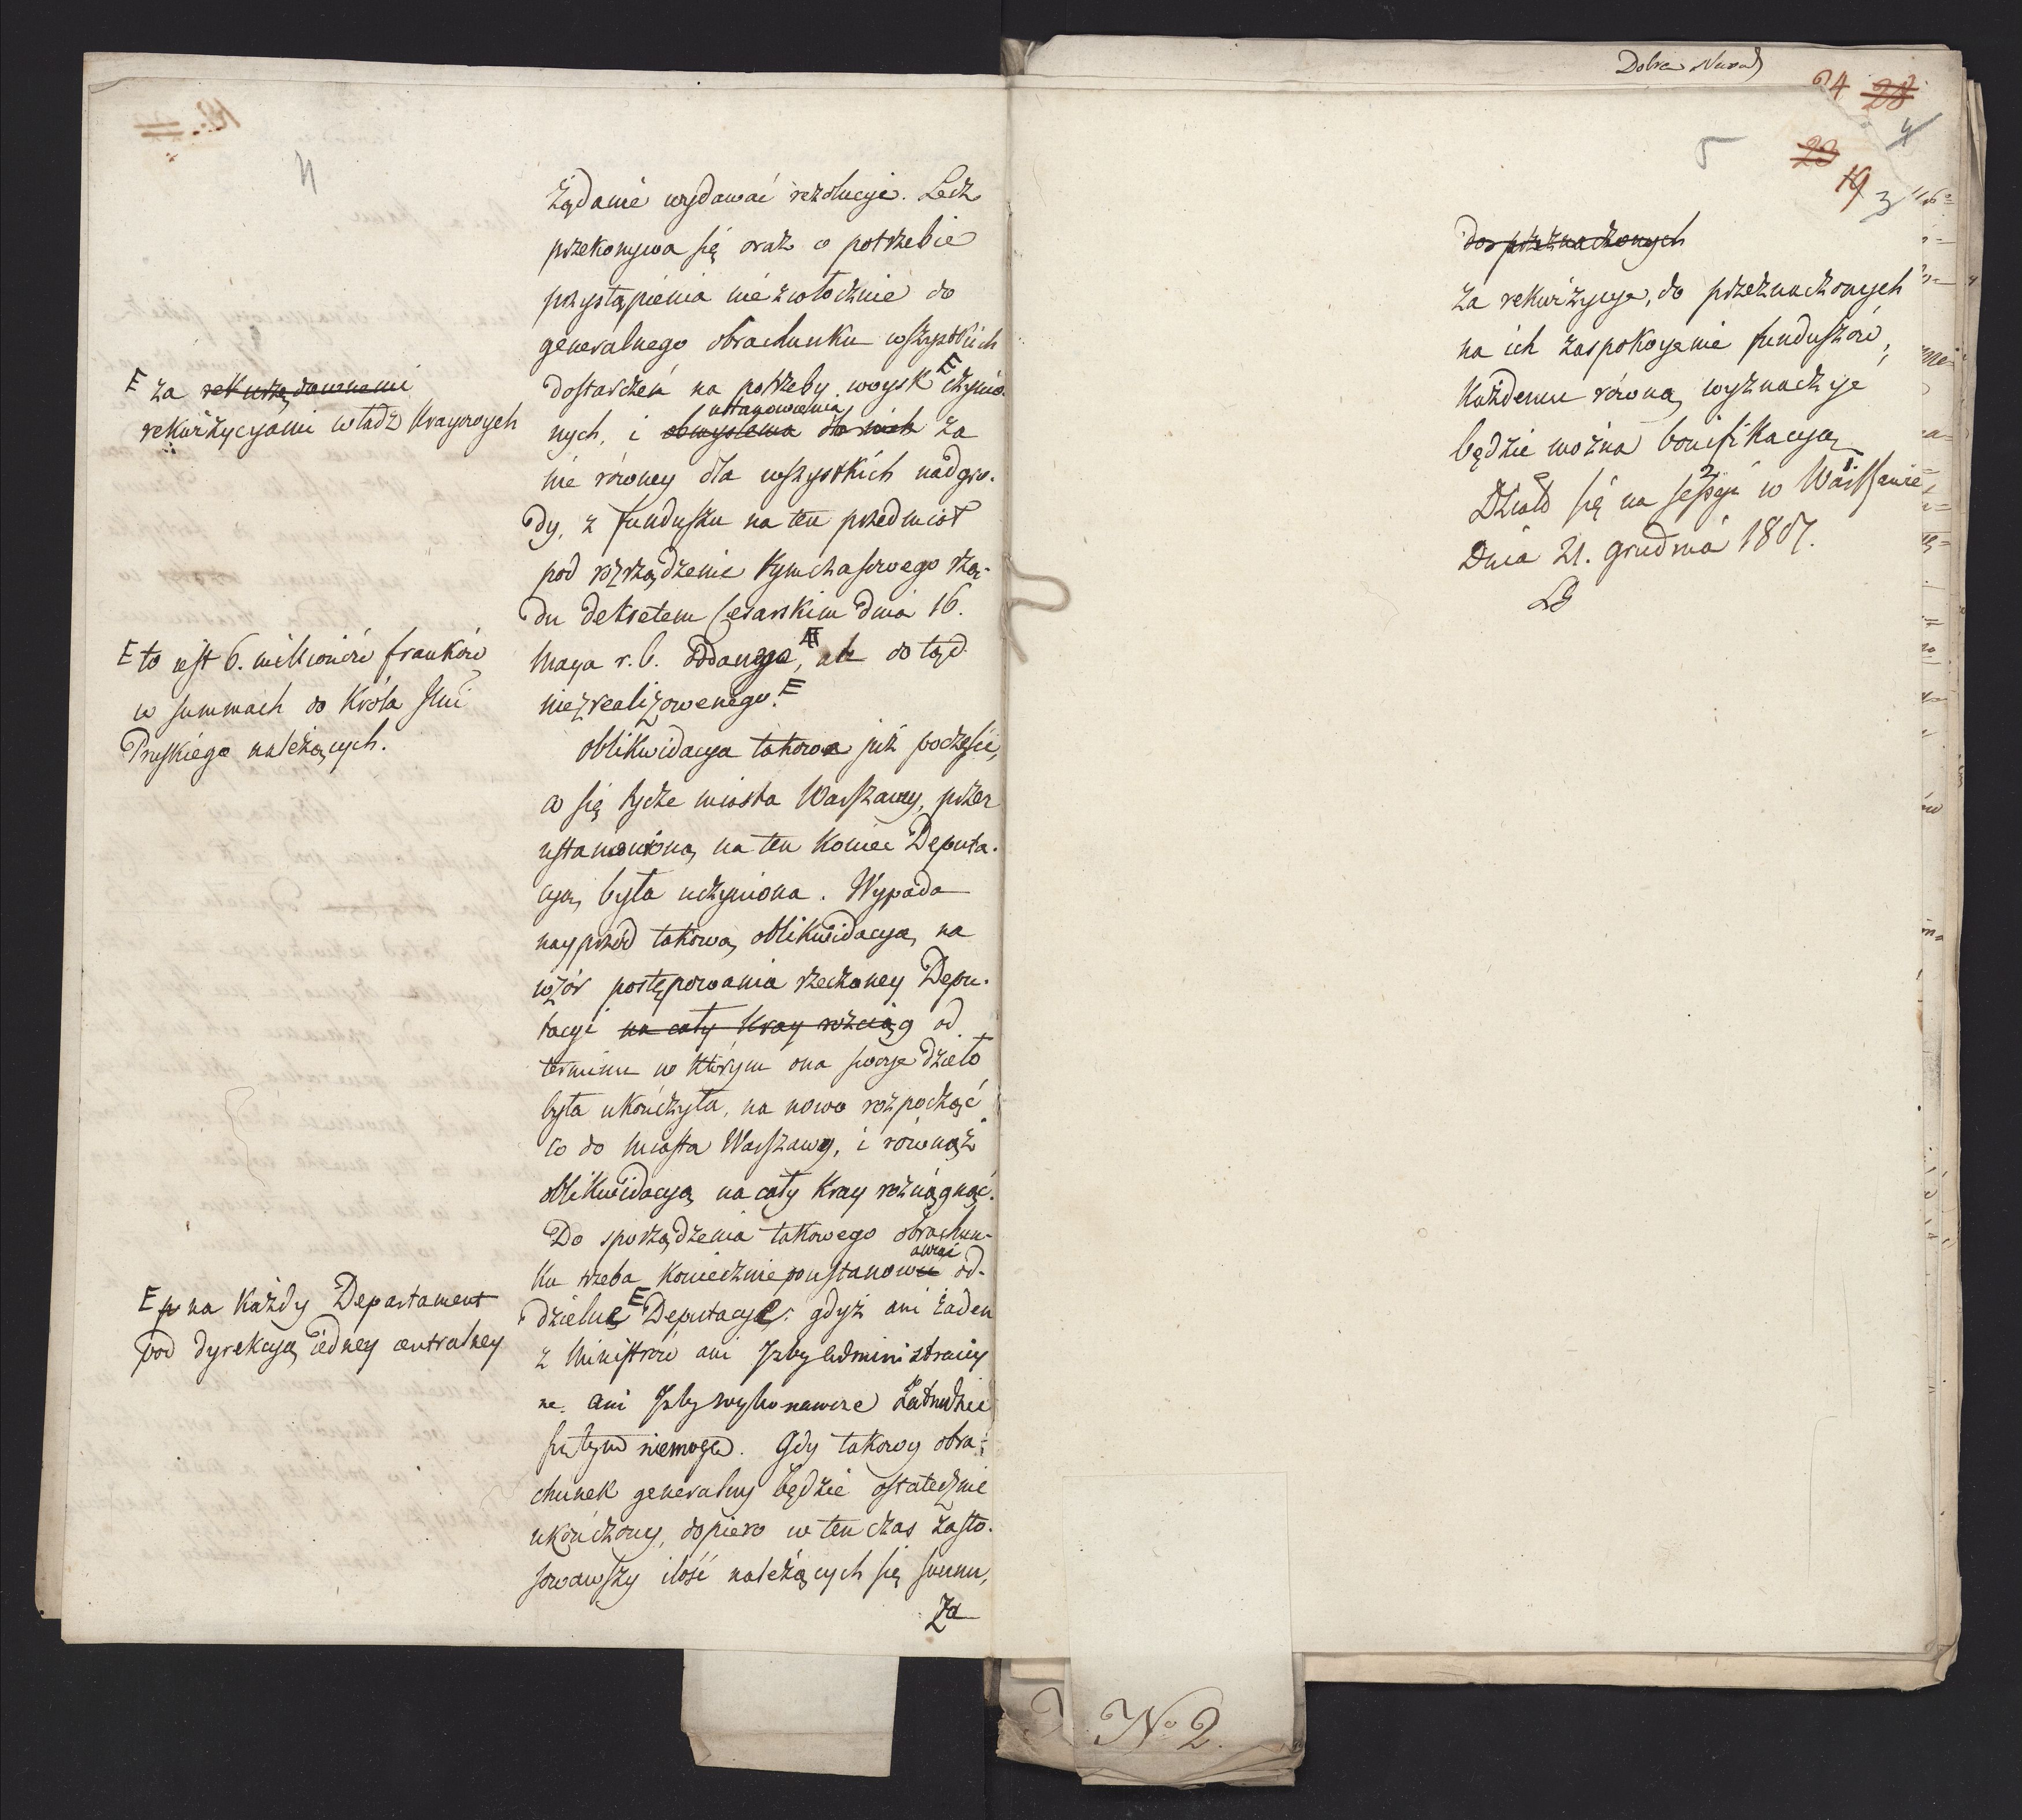 4
żądanie wydawać rezolucye. Lecz
przekonywa się oraz o potrzebie
przystąpienia niezwłocznie do
generalnego obrachunku wszystkich
dostarczeń na potrzeby woysk E czynio-
nych, i obmyślenia dla nich ustanowienia za
nie równey dla wszystkich nadgro-
dy, z funduszu na ten przedmiot
pod rozrządzenie tymczasowego rzą-
du dekretem Cesarskim dnia 16.
Maya r. b. oddanego, ale dotąd
niezrealizowanego. E
oblikwidacya takowa już poczęści,
co się tycze miasta Warszawy, przez
ustanowioną na ten koniec Deputa-
cyą, była uczyniona. Wypada
nayprzód takową oblikwidacyą, na
wzór postępowania rzeczoney Depu-
tacyi na cały kray rozciąg od
terminu w którym ona swoje dzieło
była ukończyła, na nowo rozpocząć
co do miasta Warszawy, i równąż
oblikwidacyą na cały kray rozciągnąć.
Do sporządzenia takowego obrachun-
ku trzeba koniecznie poustanowiać od-
dzielne E Deputacye: gdyż ani żaden
z Ministrów ani Izby administracyy
ne. ani Izby wykonawcze zatrudnić
się tym niemogą. Gdy takowy obra-
chunek generalny będzie ostatecznie
ukończony, dopiero w ten czas zasto-
sowawszy ilość należących się summ,
Za
E za rekwizycyami władz kraiowych
E to iest 6. millionów franków
w summach do Króla Jmci
Pruskiego należących.
E po na każdy Departament
pod dyrekcyą iedney centralney
Dobra Narod
24 28
4
5
23
19
3
do przeznaczonych
za rekwizycye, do przeznaczonych
na ich zaspokojenie funduszów,
każdemu równą wyznaczyć
będzie można bonifikacyą
Działo się na Sessyi w Warszawie
Dnia 21. Grudnia 1807.
No 2.